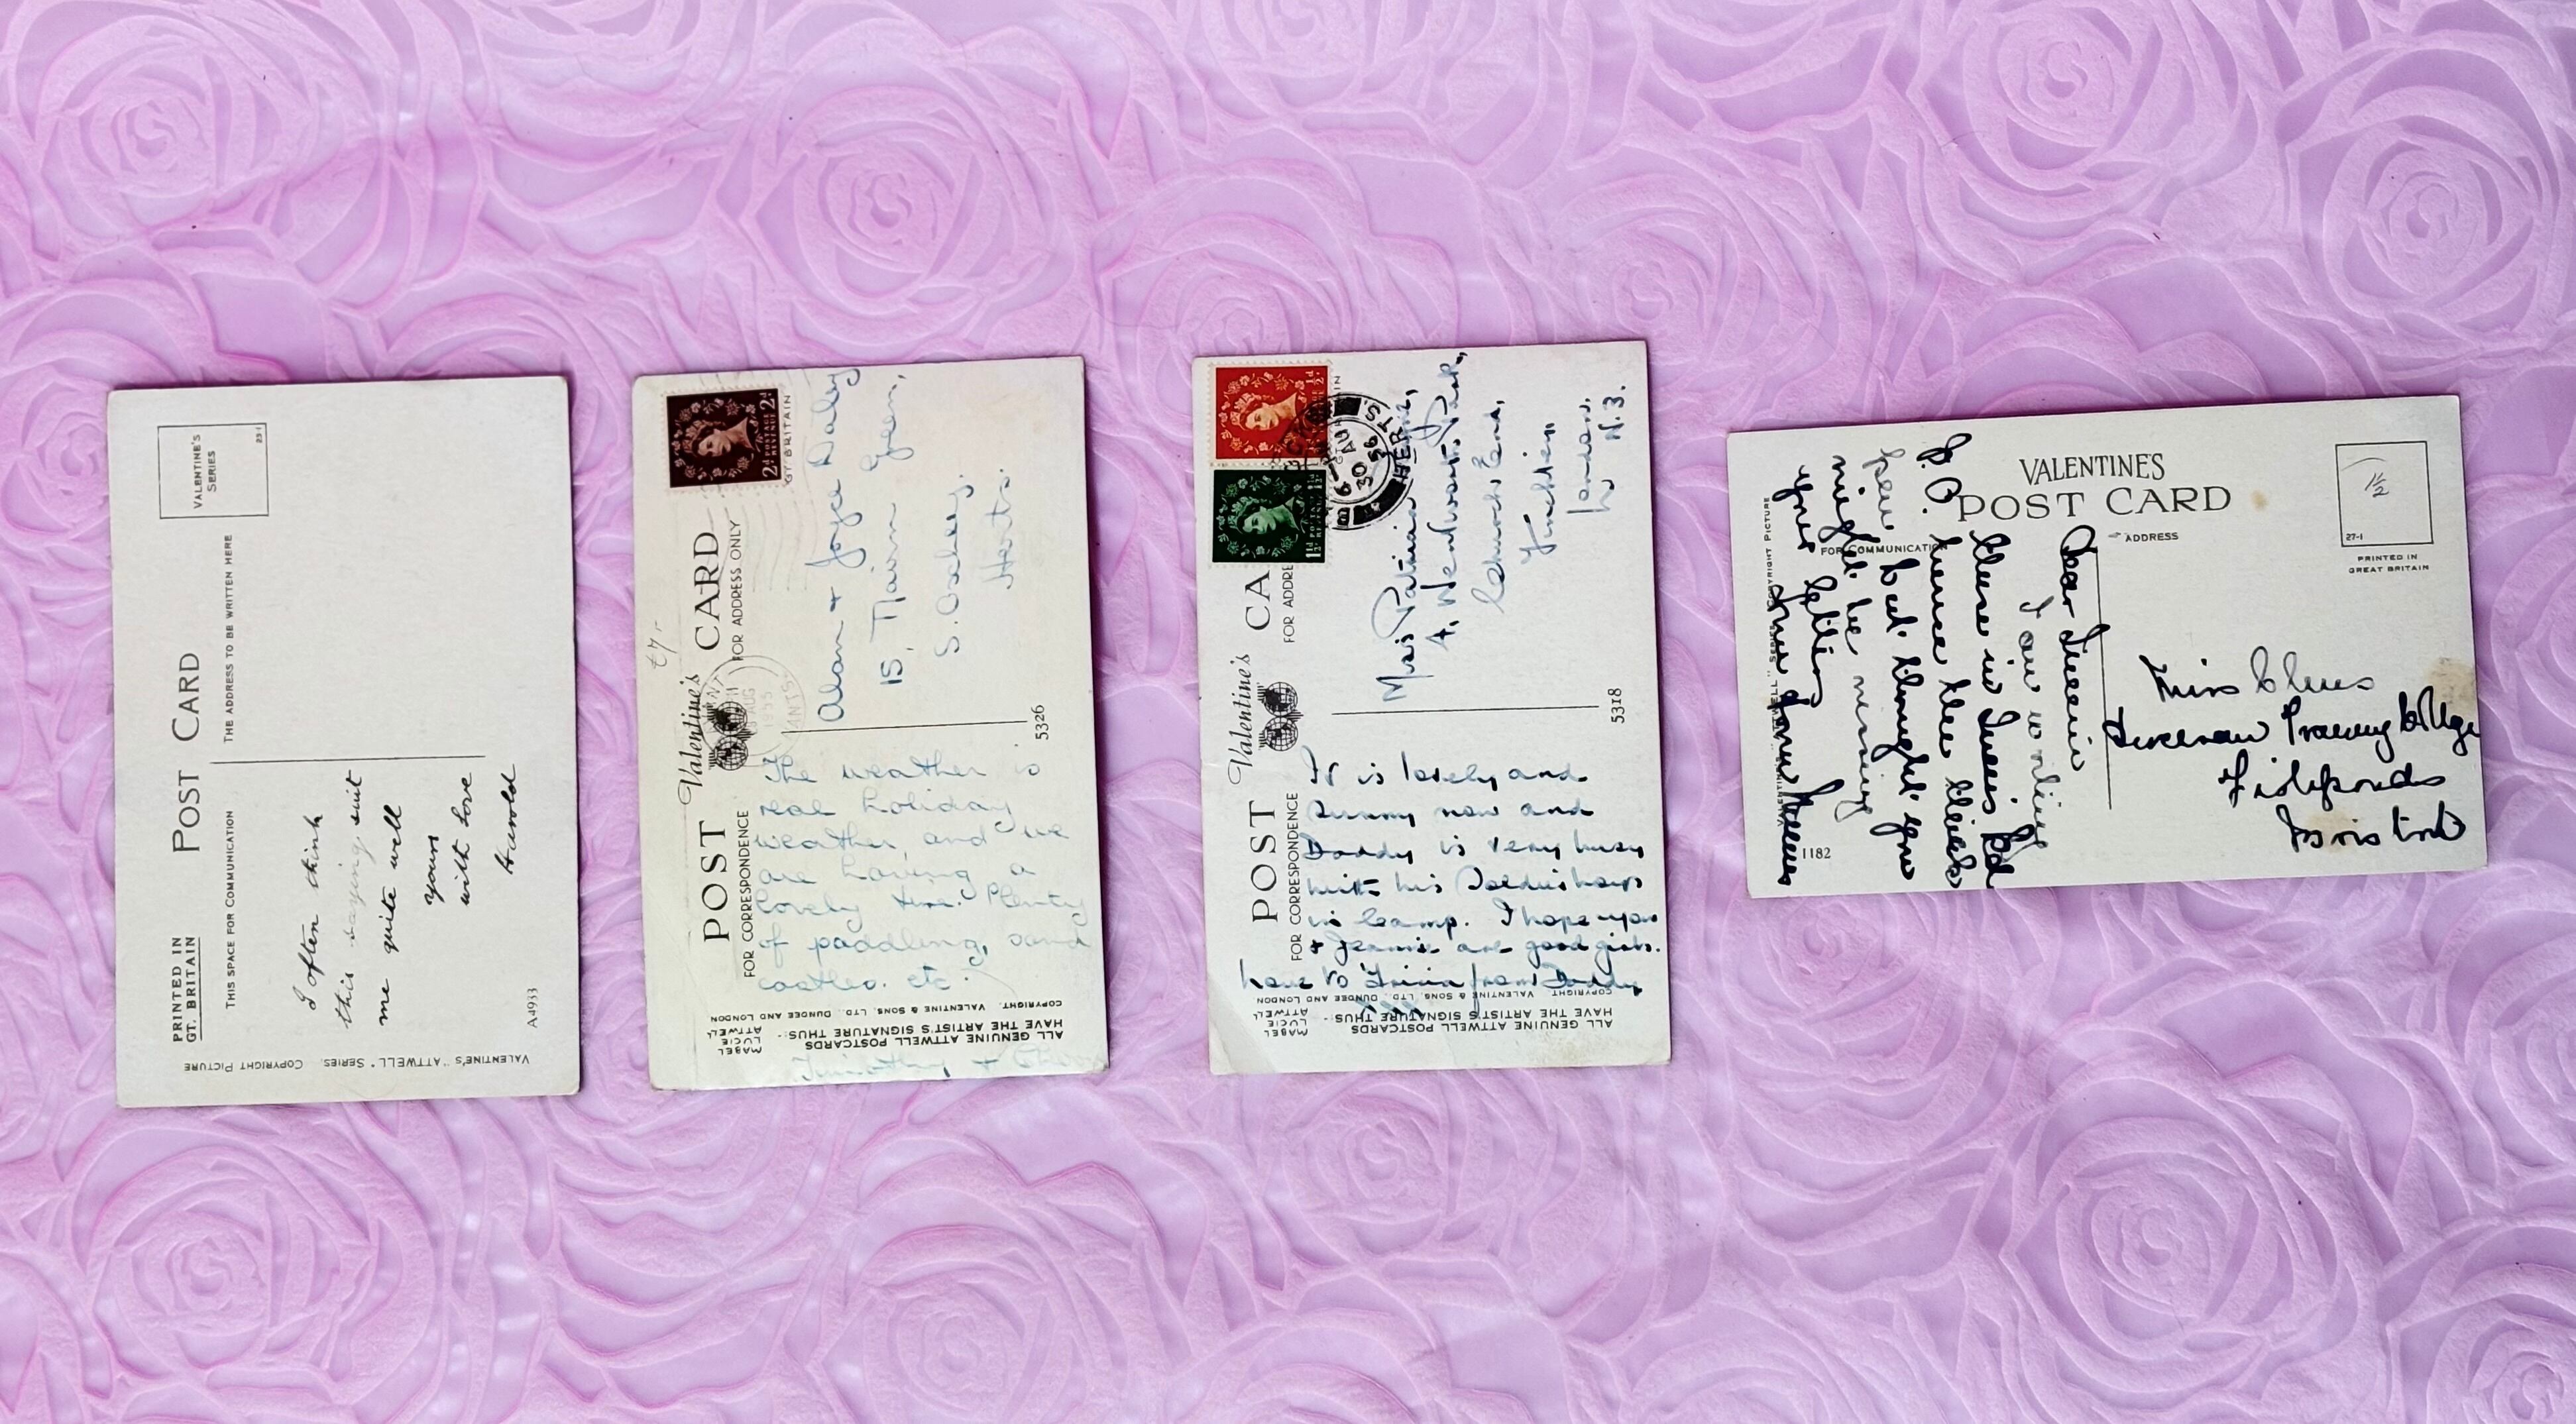 PRINTED IN
GT. BRITAIN
POST CARD
THIS SPACE FOR COMMUNICATION
THE ADDRESS TO BE WRITTEN HERE
VALENTINE'S
SERIES
23-1
I often think
this saying suit
me quite well
yours
with love
Harold
A4933
VALENTINE'S "ATTWELL" SERIES. COPYRIGHT PICTURE
Valentine's
POST CARD
FOR CORRESPONDENCE
FOR ADDRESS ONLY
2D POSTAGE REVENUE 2D
GT BRITAIN
AUG
1955
HANTS.
The weather is
real holiday
weather, and we
are having a
lovely time. Plenty
of paddling, sand
castles. etc.
Timothy +
Alan + Joyce Daley
15, Nairn Green,
S. Oxhey.
Herts.
5326
ALL GENUINE ATTWELL POSTCARDS
HAVE THE ARTIST'S SIGNATURE THUS:-
MABEL
LUCIE
ATTWELL
COPYRIGHT. VALENTINE & SONS, LTD., DUNDEE AND LONDON
Valentine's
POST CA
FOR CORRESPONDENCE
FOR ADDRE
30 AU
56
It is lovely and
sunny now and
Daddy is very busy
with his Soldier boys
in camp. I hope you
+ Jeannie are good girls.
love to from Daddy
xxx
Miss Patricia
4, Wentworth Park,
Church End,
Finchley
London.
N.3.
5318
ALL GENUINE ATTWELL POSTCARDS
HAVE THE ARTIST'S SIGNATURE THUS:-
MABEL
LUCIE
ATTWELL
COPYRIGHT. VALENTINE & SONS, LTD., DUNDEE AND LONDON
VALENTINE'S
POST CARD
FOR COMMUNICATION
ADDRESS
27-1
PRINTED IN
GREAT BRITAIN
1½
Dear
I am writing
this in
hence the black
pen but thought you
might be
your letter
P.O.
Miss
Training College
Fishponds
Bristol
"ATTWELL" SERIES COPYRIGHT PICTURE
1182